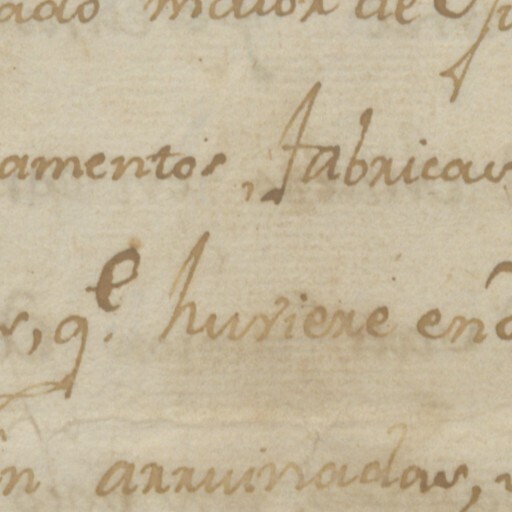 ado maior de
amentos, fabricas
s, q.e huviere en
n arruinadas,